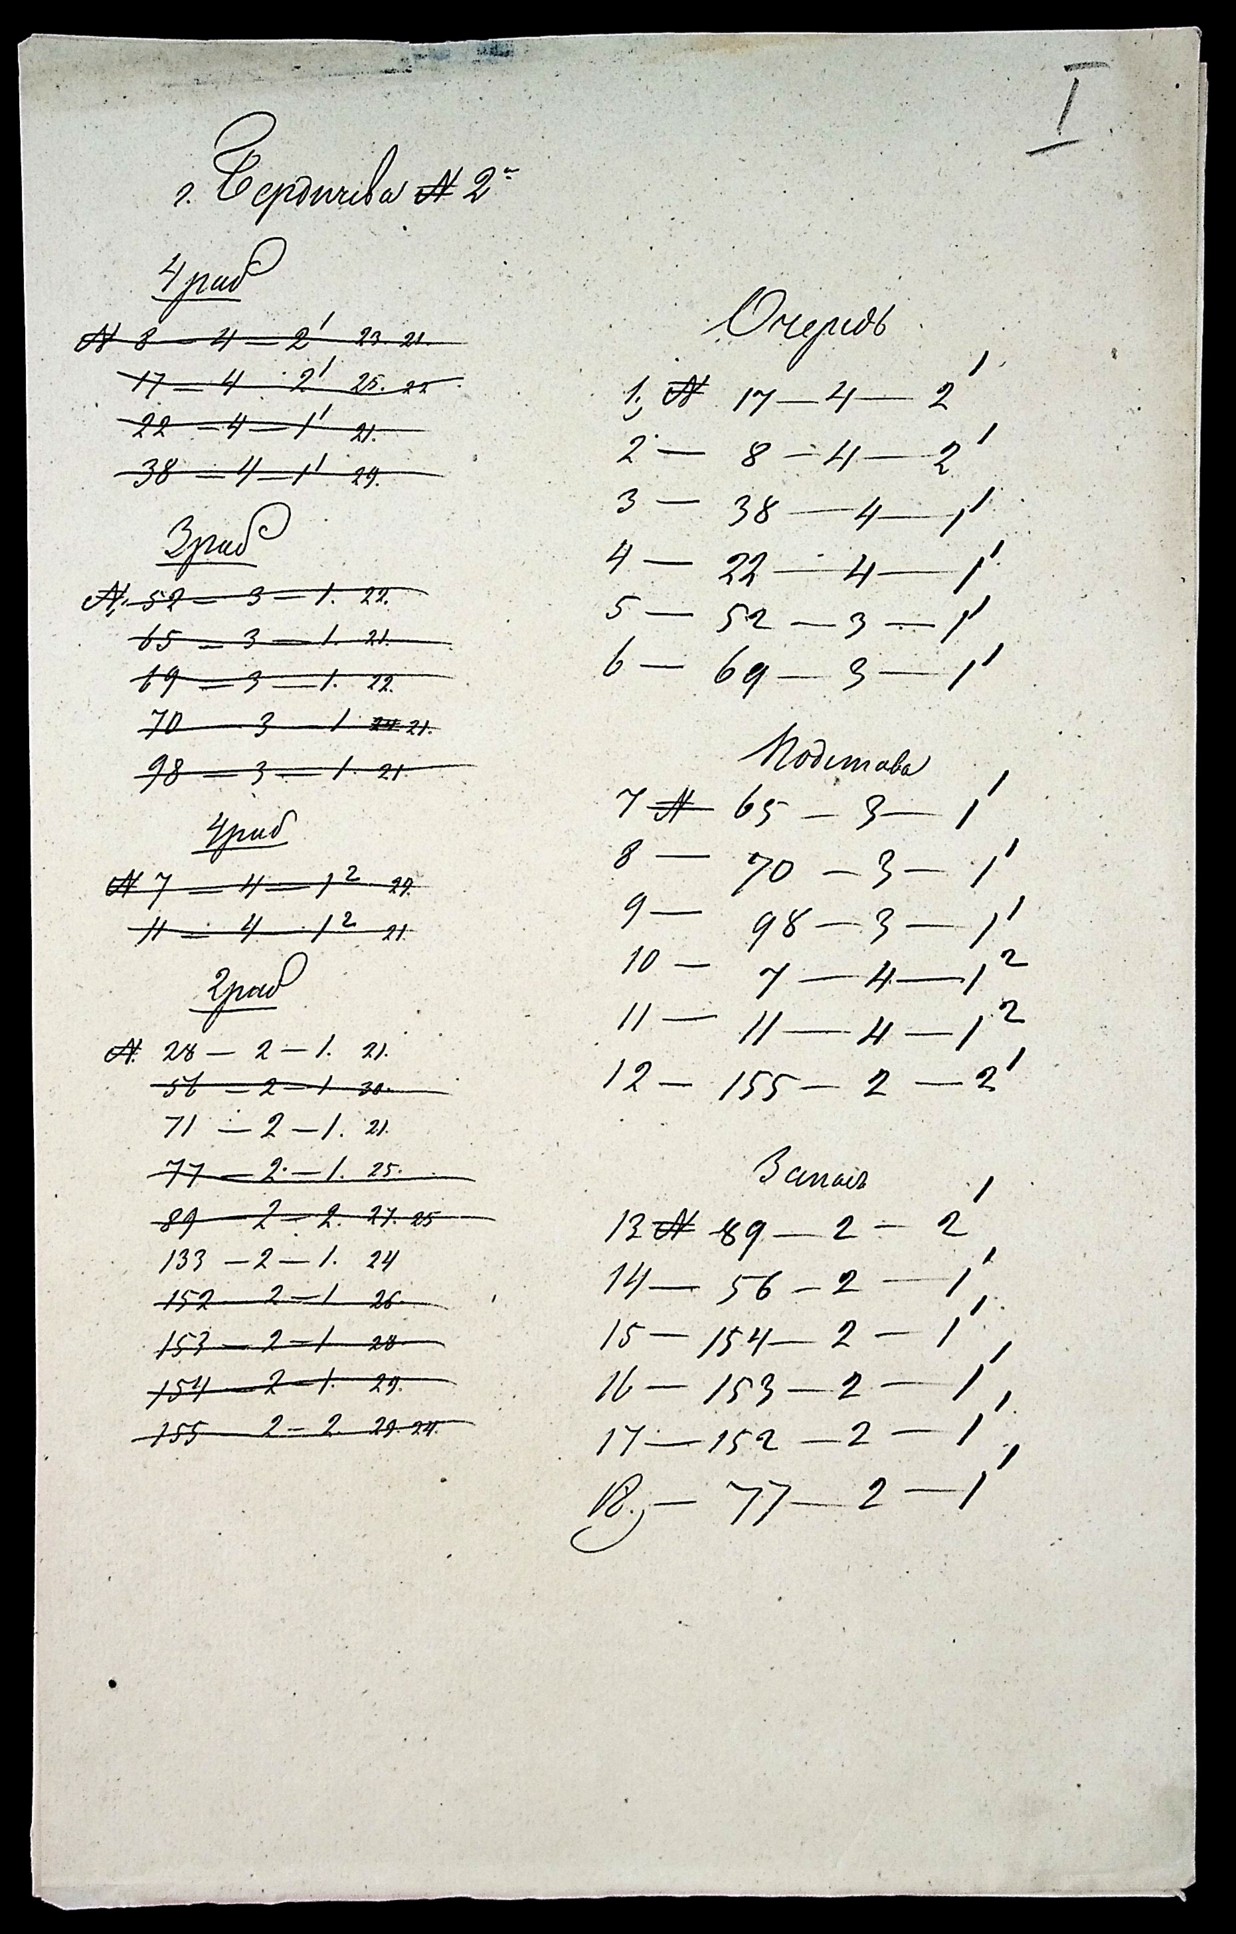 I
г. Бердичева № 2й
4 раб
№ 8 — 4 — 2' 23. 21.
17 — 4 — 2' 25. 22
22 — 4 — 1' 21.
38 — 4 — 1' 29.
3 раб
№. 52 — 3 — 1. 22.
65 — 3 — 1. 21.
69 — 3 — 1. 22.
70 — 3 — 1 21.
98 — 3 — 1. 21.
4 раб
№ 7 — 4 — 1² 29.
11 — 4 — 1² 21
2 раб
№. 28 — 2 — 1. 21.
56 — 2 — 1 30.
71 — 2 — 1. 21.
77 — 2. — 1. 25.
89 — 2 — 2. 27. 25
133 — 2 — 1. 24
152 — 2 — 1 26.
153 — 2 — 1. 28.
154 — 2 — 1. 29.
155 — 2 — 2. 29. 24.
Очередь
1, № 17 — 4 — 2'
2 — 8 — 4 — 2'
3 — 38 — 4 — 1'
4 — 22 — 4 — 1'
5 — 52 — 3 — 1'
6 — 69 — 3 — 1'
Подстава
7 № 65 — 3 — 1'
8 — 70 — 3 — 1'
9 — 98 — 3 — 1'
10 — 7 — 4 — 1²
11 — 11 — 4 — 1²
12 — 155 — 2 — 2'
Запасъ
13 № 89 — 2 — 2'
14 — 56 — 2 — 1'
15 — 154 — 2 — 1'
16 — 153 — 2 — 1'
17 — 152 — 2 — 1'
18, — 77 — 2 — 1'